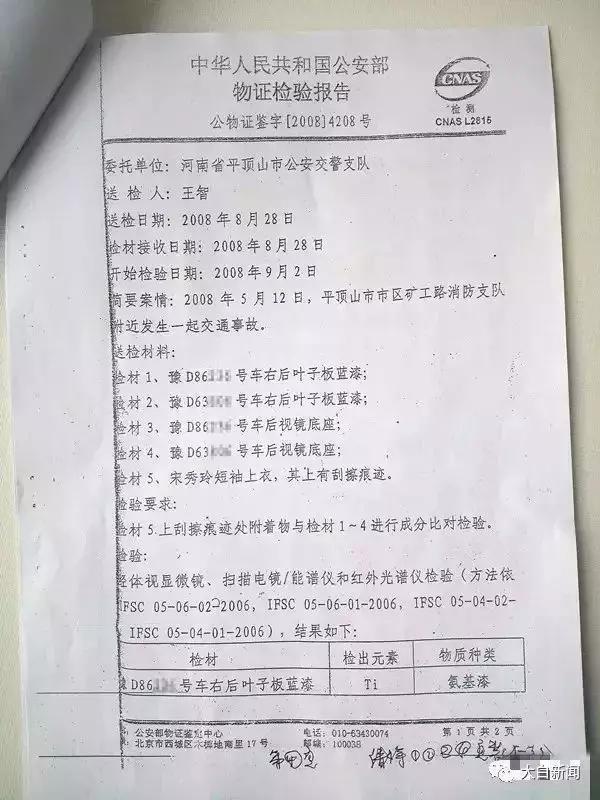 中华人民共和国公安部
物证检验报告
公物证鉴字[2008]4208号
CNAS
检测
CNAS L2815
委托单位：河南省平顶山市公安交警支队
送检人：王智
送检日期：2008年8月28日
检材接收日期：2008年8月28日
开始检验日期：2008年9月2日
简要案情：2008年5月12日，平顶山市市区矿工路消防支队
附近发生一起交通事故。
送检材料：
检材1、豫D86 号车右后叶子板蓝漆；
检材2、豫D63 号车右后叶子板蓝漆；
检材3、豫D86 号车后视镜底座；
检材4、豫D63 号车后视镜底座；
检材5、宋秀玲短袖上衣，其上有刮擦痕迹。
检验要求：
检材5.上刮擦痕迹处附着物与检材1~4进行成分比对检验。
检验：
经体视显微镜、扫描电镜/能谱仪和红外光谱仪检验（方法依
IFSC 05-06-02-2006，IFSC 05-06-01-2006，IFSC 05-04-02-
IFSC 05-04-01-2006），结果如下：
检材 检出元素 物质种类
D86 号车右后叶子板蓝漆 Ti 氨基漆
公安部物证鉴定中心 电话：010-63430074 第1页共2页
北京市西城区木樨地南里17号 邮编：100038
大白新闻